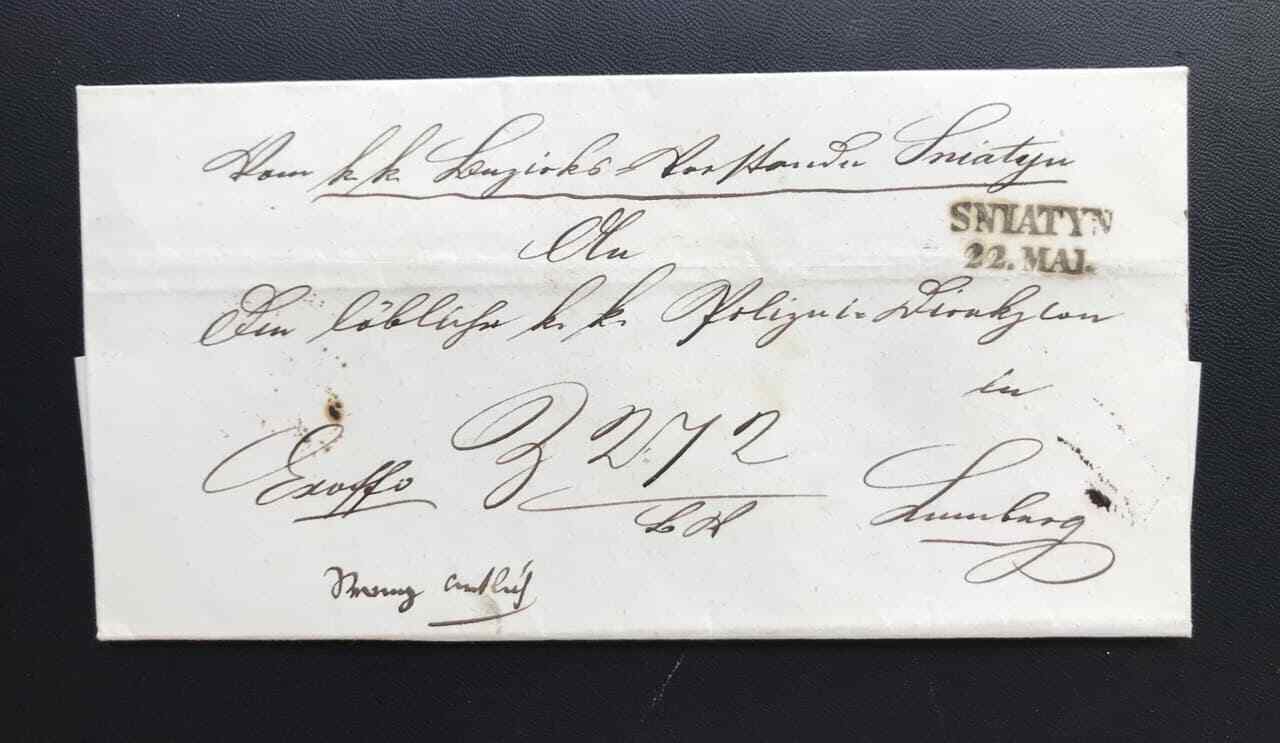 Vom k. k. Bezirks-Vorstande Sniatyn
SNIATYN
22. MAI.
An
Die löbliche k. k. Polizei-Direkzion
in
Z 272
Exoffo
BA
Lemberg
Streng amtlich